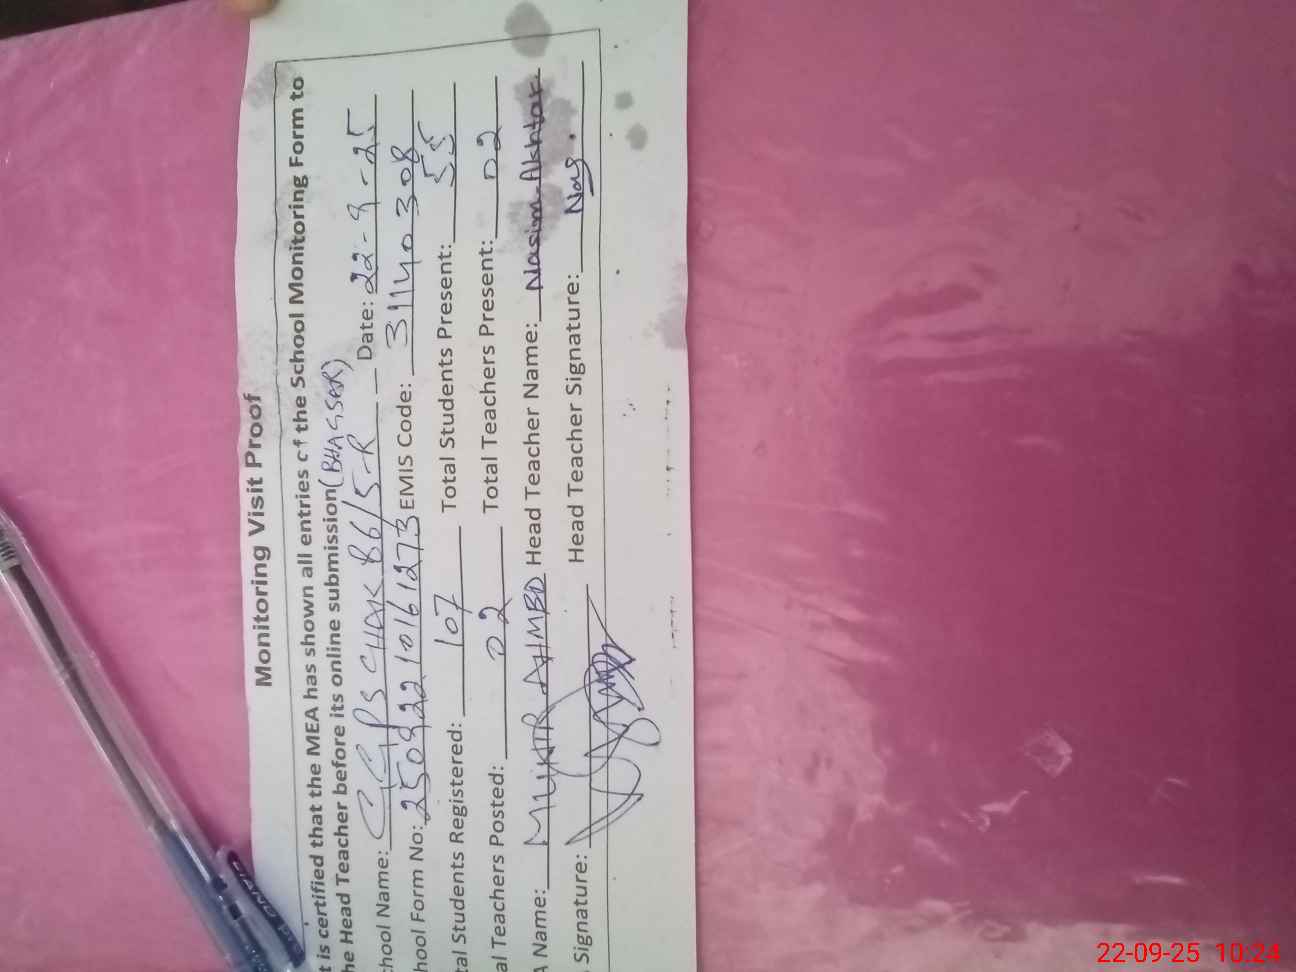 Monitoring Visit Proof
t is certified that the MEA has shown all entries of the School Monitoring Form to
he Head Teacher before its online submission (BHAGSER)
chool Name: GGPS CHAK 86/5-R Date: 22-9-25
hool Form No: 25092210161273 EMIS Code: 31140308
tal Students Registered: 107 Total Students Present: 55
al Teachers Posted: 02 Total Teachers Present: 02
A Name: AHMED Head Teacher Name: Nasim Akhtar
Signature: Head Teacher Signature:
PIANO
22-09-25 10:24